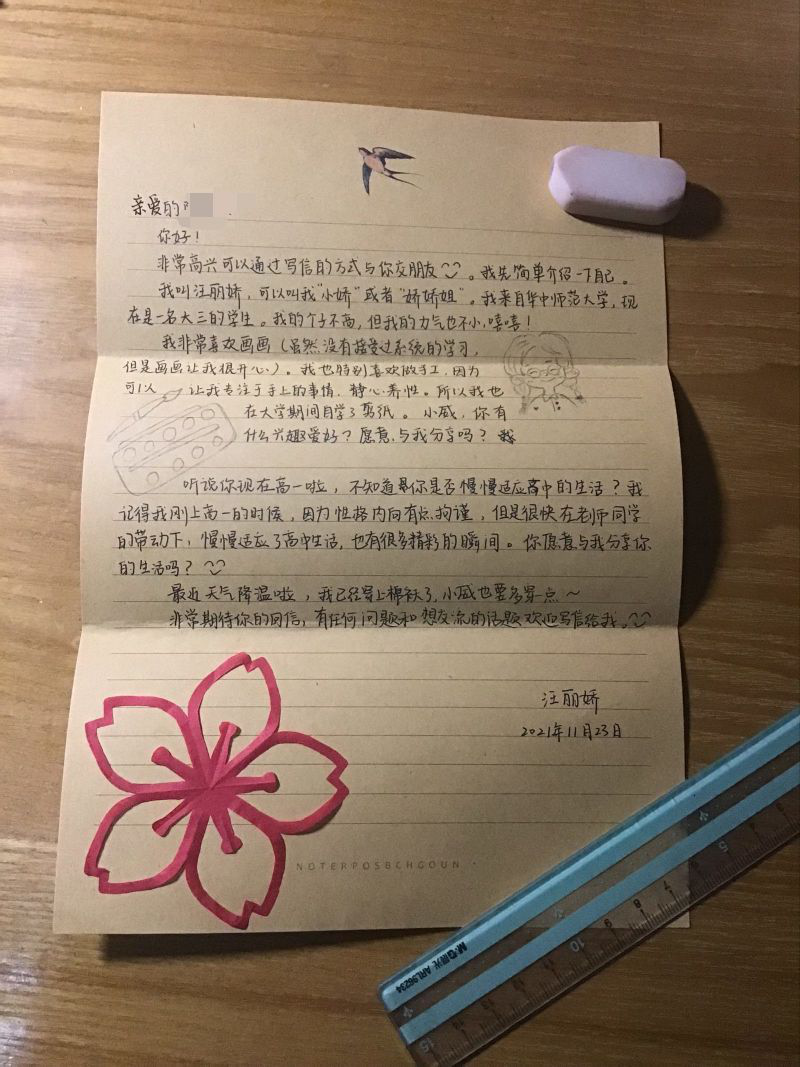 亲爱的
你好！
非常高兴可以通过写信的方式与你交朋友。我先简单介绍一下自己。
我叫汪丽娇，可以叫我“小娇”或者“娇娇姐”。我来自华中师范大学，现
在是一名大三的学生。我的个子不高，但我的力气也不小，嘻嘻！
我非常喜欢画画（虽然没有接受过系统的学习，
但是画画让我很开心）。我也特别喜欢做手工，因为
可以让我专注于手上的事情，静心养性。所以我也
在大学期间自学了剪纸。小威，你有
什么兴趣爱好？愿意与我分享吗？
听说你现在高一啦，不知道你是否慢慢适应高中的生活？我
记得我刚上高一的时候，因为性格内向有点拘谨，但是很快在老师同学
的带动下，慢慢适应了高中生活，也有很多精彩的瞬间。你愿意与我分享你
的生活吗？
最近天气降温啦，我已经穿上棉袄了，小威也要多穿一点～
非常期待你的回信，有任何问题和想交流的话题欢迎写信给我。
汪丽娇
2021年11月23日
NOTERPOSBCHGOUN
M&G晨光 ARL96234
5
6
7
8
9
10
15